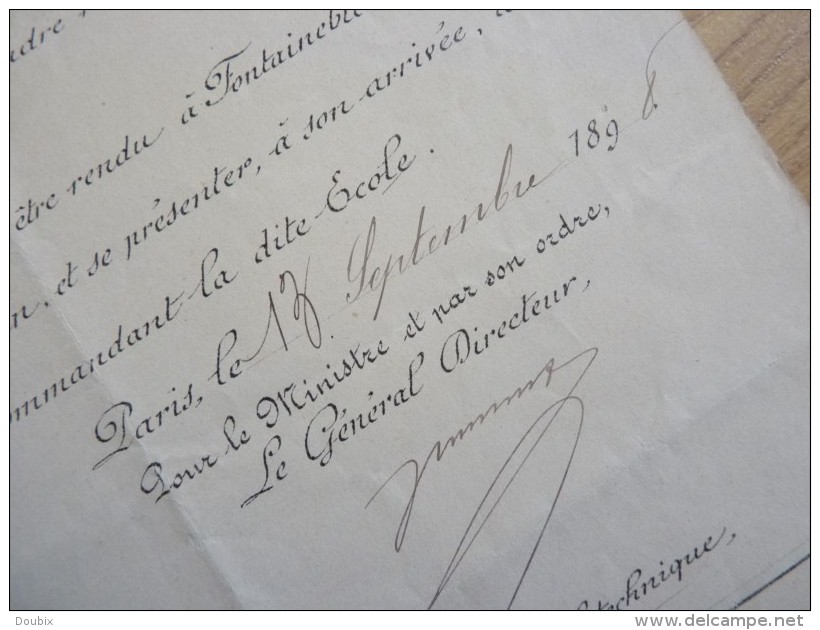 être rendu à Fontaineble
n, et se présenter, à son arrivée,
ommandant la dite Ecole.
Paris, le 17 Septembre 1898.
Pour le Ministre et par son ordre,
Le Général Directeur,
technique,
Doubix
www.delcampe.net